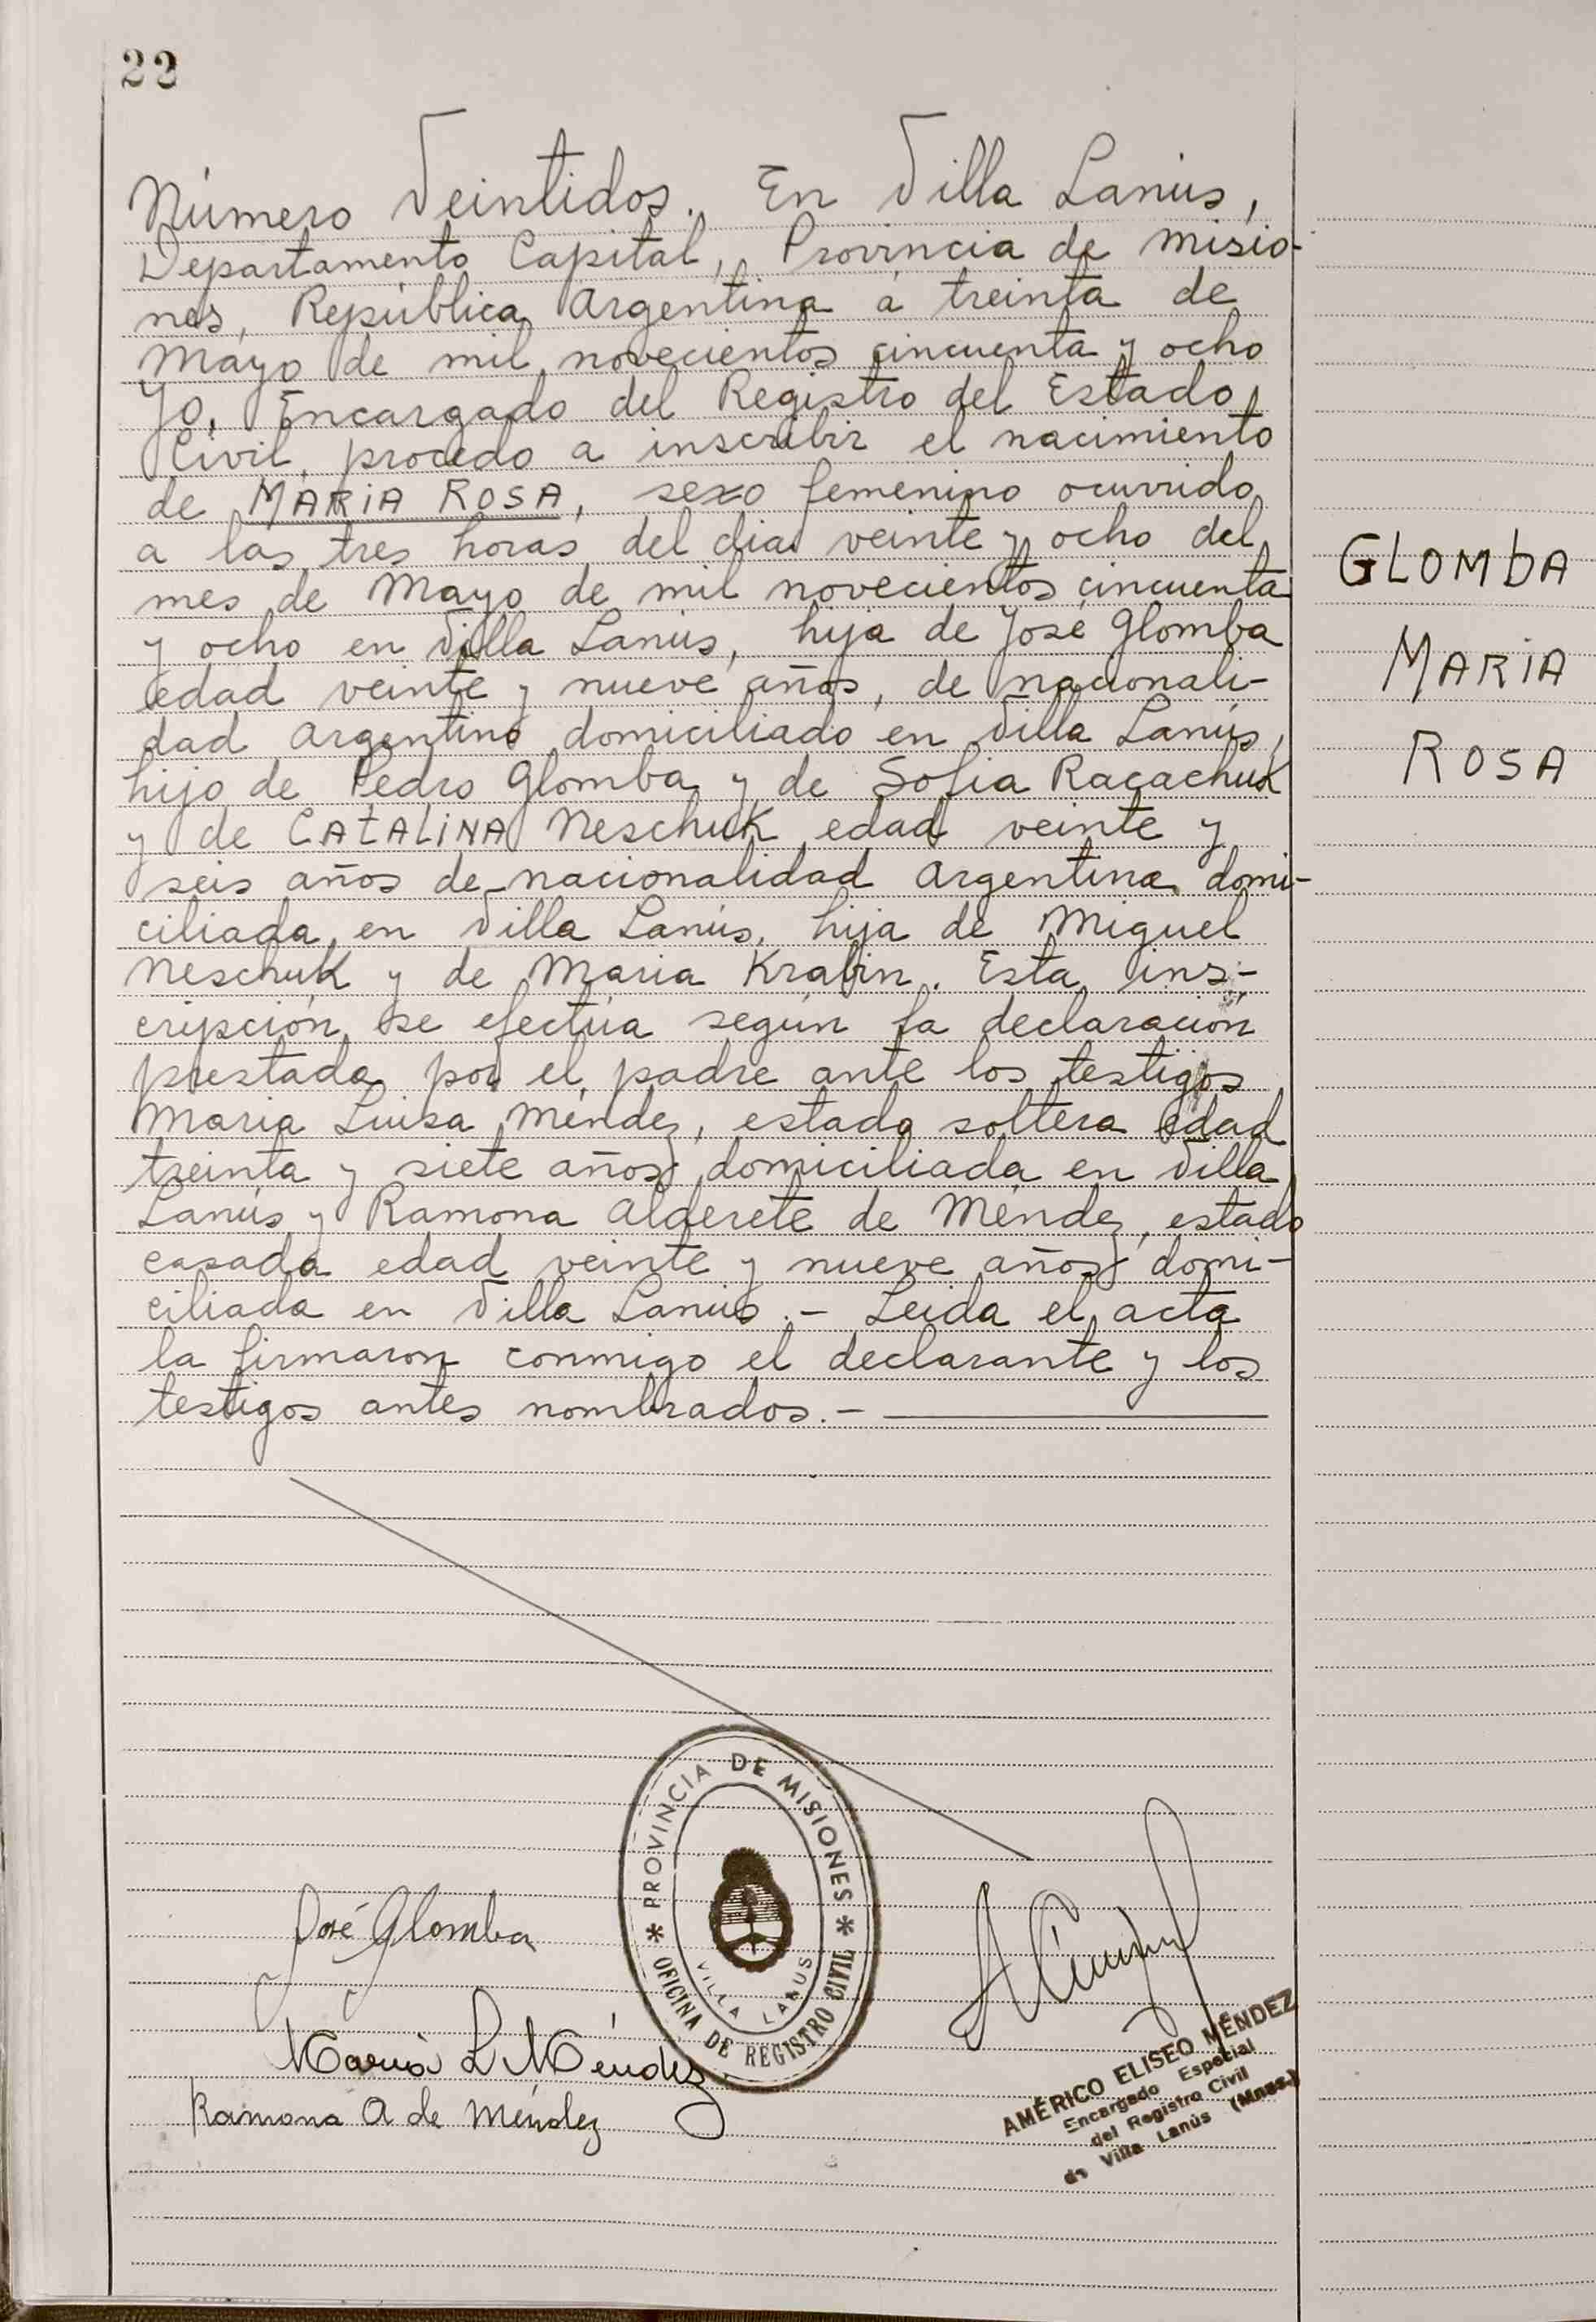 22
Número Veintidos. En Villa Lanús,
Departamento Capital, Provincia de Misio-
nes, República Argentina a treinta de
Mayo de mil novecientos cincuenta y ocho
Yo, Encargado del Registro del Estado
Civil, procedo a inscribir el nacimiento
de MARIA ROSA, sexo femenino ocurrido
a las tres horas del dia veinte y ocho del
mes de Mayo de mil novecientos cincuenta
y ocho en Villa Lanús, hija de José Glomba
edad veinte y nueve años, de nacionali-
dad Argentino domiciliado en Villa Lanús,
hijo de Pedro Glomba y de Sofia Racachuk
y de CATALINA Neschuk edad veinte y
seis años de nacionalidad Argentina domi-
ciliada en Villa Lanús, hija de Miguel
Neschuk y de Maria Krabin. Esta ins-
cripción se efectúa según la declaración
prestada por el padre ante los testigos
Maria Luisa Méndez, estado soltera edad
treinta y siete años domiciliada en Villa
Lanús y Ramona Alderete de Méndez, estado
casada edad veinte y nueve años domi-
ciliada en Villa Lanús.- Leida el acta
la firmaron conmigo el declarante y los
testigos antes nombrados.-
GLOMbA
MARiA
ROSA
PROVINCIA DE MISIONES
VILLA LANUS
OFICINA DE REGISTRO CIVIL
José Glomba
Maria L Méndez
Ramona A de Méndez
AMÉRICO ELISEO MÉNDEZ
Encargado Especial
del Registro Civil
de Villa Lanús (Mnes.)